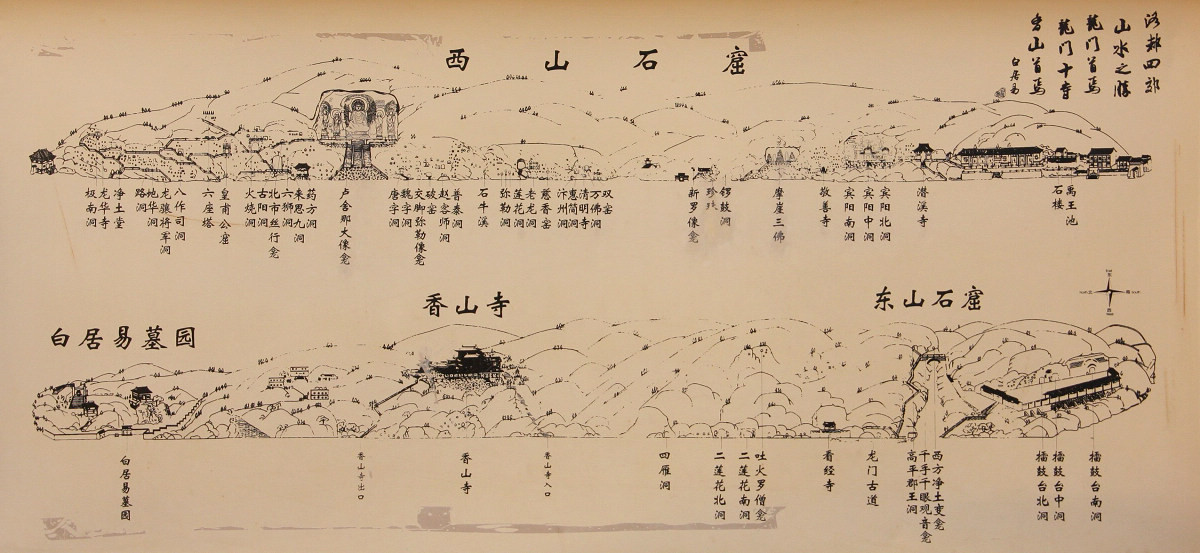 西山石窟
洛都四郊
山水之勝
龍門首焉
龍門十寺
香山首焉
白居易
极南洞
龙华寺
净土堂
路洞
龙骧将军洞
八作司洞
六座塔
皇甫公窟
火烧洞
古阳洞
北市丝行龛
六狮洞
来思九洞
药方洞
卢舍那大像龛
唐字洞
魏字洞
交脚弥勒像龛
破窑
赵客师洞
普泰洞
石牛溪
弥勒洞
莲花洞
老龙洞
慈香窑
汴州洞
惠简洞
清明寺
万佛洞
双窑
新罗像龛
珍珠
锷鼓洞
摩崖三佛
敬善寺
宾阳南洞
宾阳中洞
宾阳北洞
潜溪寺
石楼
禹王池
白居易墓园
香山寺
东山石窟
白居易墓园
香山寺出口
香山寺
香山寺入口
四雁洞
二莲花北洞
二莲花南洞
吐火罗僧龛
看经寺
龙门古道
高平郡王洞
千手千眼观音龛
西方净土变龛
擂鼓台北洞
擂鼓台中洞
擂鼓台南洞